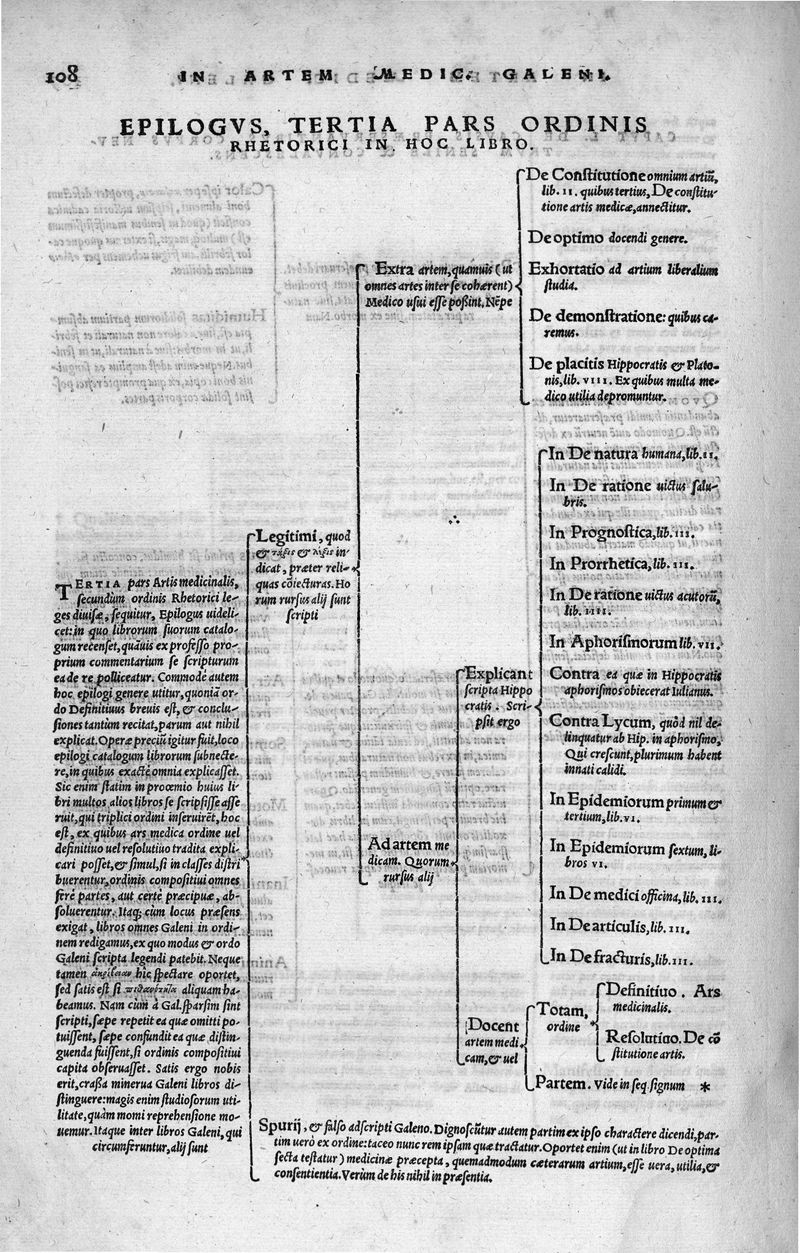 108
IN ARTEM MEDIC. GALENI.
EPILOGVS, TERTIA PARS ORDINIS
RHETORICI IN HOC LIBRO.
TERTIA pars Artis medicinalis,
secundùm ordinis Rhetorici le-
ges diuisæ, sequitur, Epilogus uideli-
cet: in quo librorum suorum catalo-
gum recenset, quāuis ex professo pro-
prium commentarium se scripturum
ea de re polliceatur. Commodè autem
hoc epilogi genere utitur, quoniā or-
do Definitiuus breuis est, & conclu-
siones tantùm recitat, parum aut nihil
explicat. Operæ preciū igitur fuit, loco
epilogi catalogum librorum subnecte-
re, in quibus exactè omnia explicasset.
Sic enim statim in proœmio huius li-
bri multos alios libros se scripsisse asse
ruit, qui triplici ordini inseruirēt, hoc
est, ex quibus ars medica ordine uel
definitiuo uel resolutiuo tradita expli-
cari posset, & simul, si in classes distri
buerentur, ordinis compositiui omnes
ferè partes, aut certè præcipuæ, ab-
soluerentur. Itaq; cùm locus præsens
exigat, libros omnes Galeni in ordi-
nem redigamus, ex quo modus & ordo
Galeni scripta legendi patebit. Neque
tamen ἀκρίβειαν hic spectare oportet,
sed satis est si aliquam ha-
beamus. Nam cùm à Gal. sparsim sint
scripti, sæpe repetit ea quæ omitti po-
tuissent, sæpe confundit ea quæ distin-
guenda fuissent, si ordinis compositiui
capita obseruasset. Satis ergo nobis
erit, crassa minerua Galeni libros di-
stinguere: magis enim studiosorum uti-
litate, quàm momi reprehensione mo-
uemur. Itaque inter libros Galeni, qui
circumferuntur, alij sunt
Legitimi, quod
& τάξις & λέξις in-
dicat, præter reli-
quas cōiecturas. Ho
rum rursus alij sunt
scripti
Extra artem, quamuis (ut
omnes artes inter se cohærent)
Medico usui esse possint, Nēpe
De Constitutione omnium artiū,
lib. II. quibus tertius, De constitu-
tione artis medicæ, annectitur.
De optimo docendi genere.
Exhortatio ad artium liberalium
studia.
De demonstratione: quibus ca-
remus.
De placitis Hippocratis & Plato-
nis, lib. VIII. Ex quibus multa me-
dico utilia depromuntur.
Ad artem me
dicam. Quorum
rursus alij
Explicant
scripta Hippo
cratis. Scri-
psit ergo
In De natura humana, lib. II.
In De ratione uictus salu-
bris.
In Prognostica, lib. III.
In Prorrhetica, lib. III.
In De ratione uictus acutorū,
lib. IIII.
In Aphorismorum lib. VII.
Contra ea quæ in Hippocratis
aphorismos obiecerat Iulianus.
Contra Lycum, quòd nil de-
linquatur ab Hip. in aphorismo,
Qui crescunt, plurimum habent
innati calidi.
In Epidemiorum primum &
tertium, lib. VI.
In Epidemiorum sextum, li-
bros VI.
In De medici officina, lib. III.
In De articulis, lib. III.
In De fracturis, lib. III.
Docent
artem medi
cam, & uel
Totam,
ordine
Definitiuo. Ars
medicinalis.
Resolutiuo. De cō
stitutione artis.
Partem. Vide in seq. signum *
Spurij, & falsò adscripti Galeno. Dignoscūtur autem partim ex ipso charactere dicendi, par-
tim uerò ex ordine: taceo nunc rem ipsam quæ tractatur. Oportet enim (ut in libro De optima
secta testatur) medicinæ præcepta, quemadmodum cæterarum artium, esse uera, utilia, &
consentientia. Verùm de his nihil in præsentia.